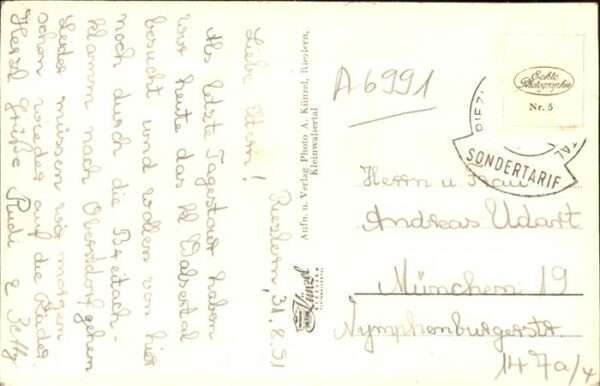 Riezlern, 31.8.51
Liebe Eltern!
Als letzte Tagestour haben
wir heute das kl Walsertal
besucht und wollen von hier
noch durch die Breitach-
klamm nach Oberstdorf gehen
Leider müssen wir morgen
schon wieder auf die Räder.
Herzl Grüße Rudi &
Aufn. u. Verlag Photo A. Künzel, Riezlern,
Kleinwalsertal
Künzel
A6991
Echte
Photographie
Nr. 5
SONDERTARIF
Herrn u. Frau
Andreas Udart
München 19
Nymphenburgerstr.
147a/4